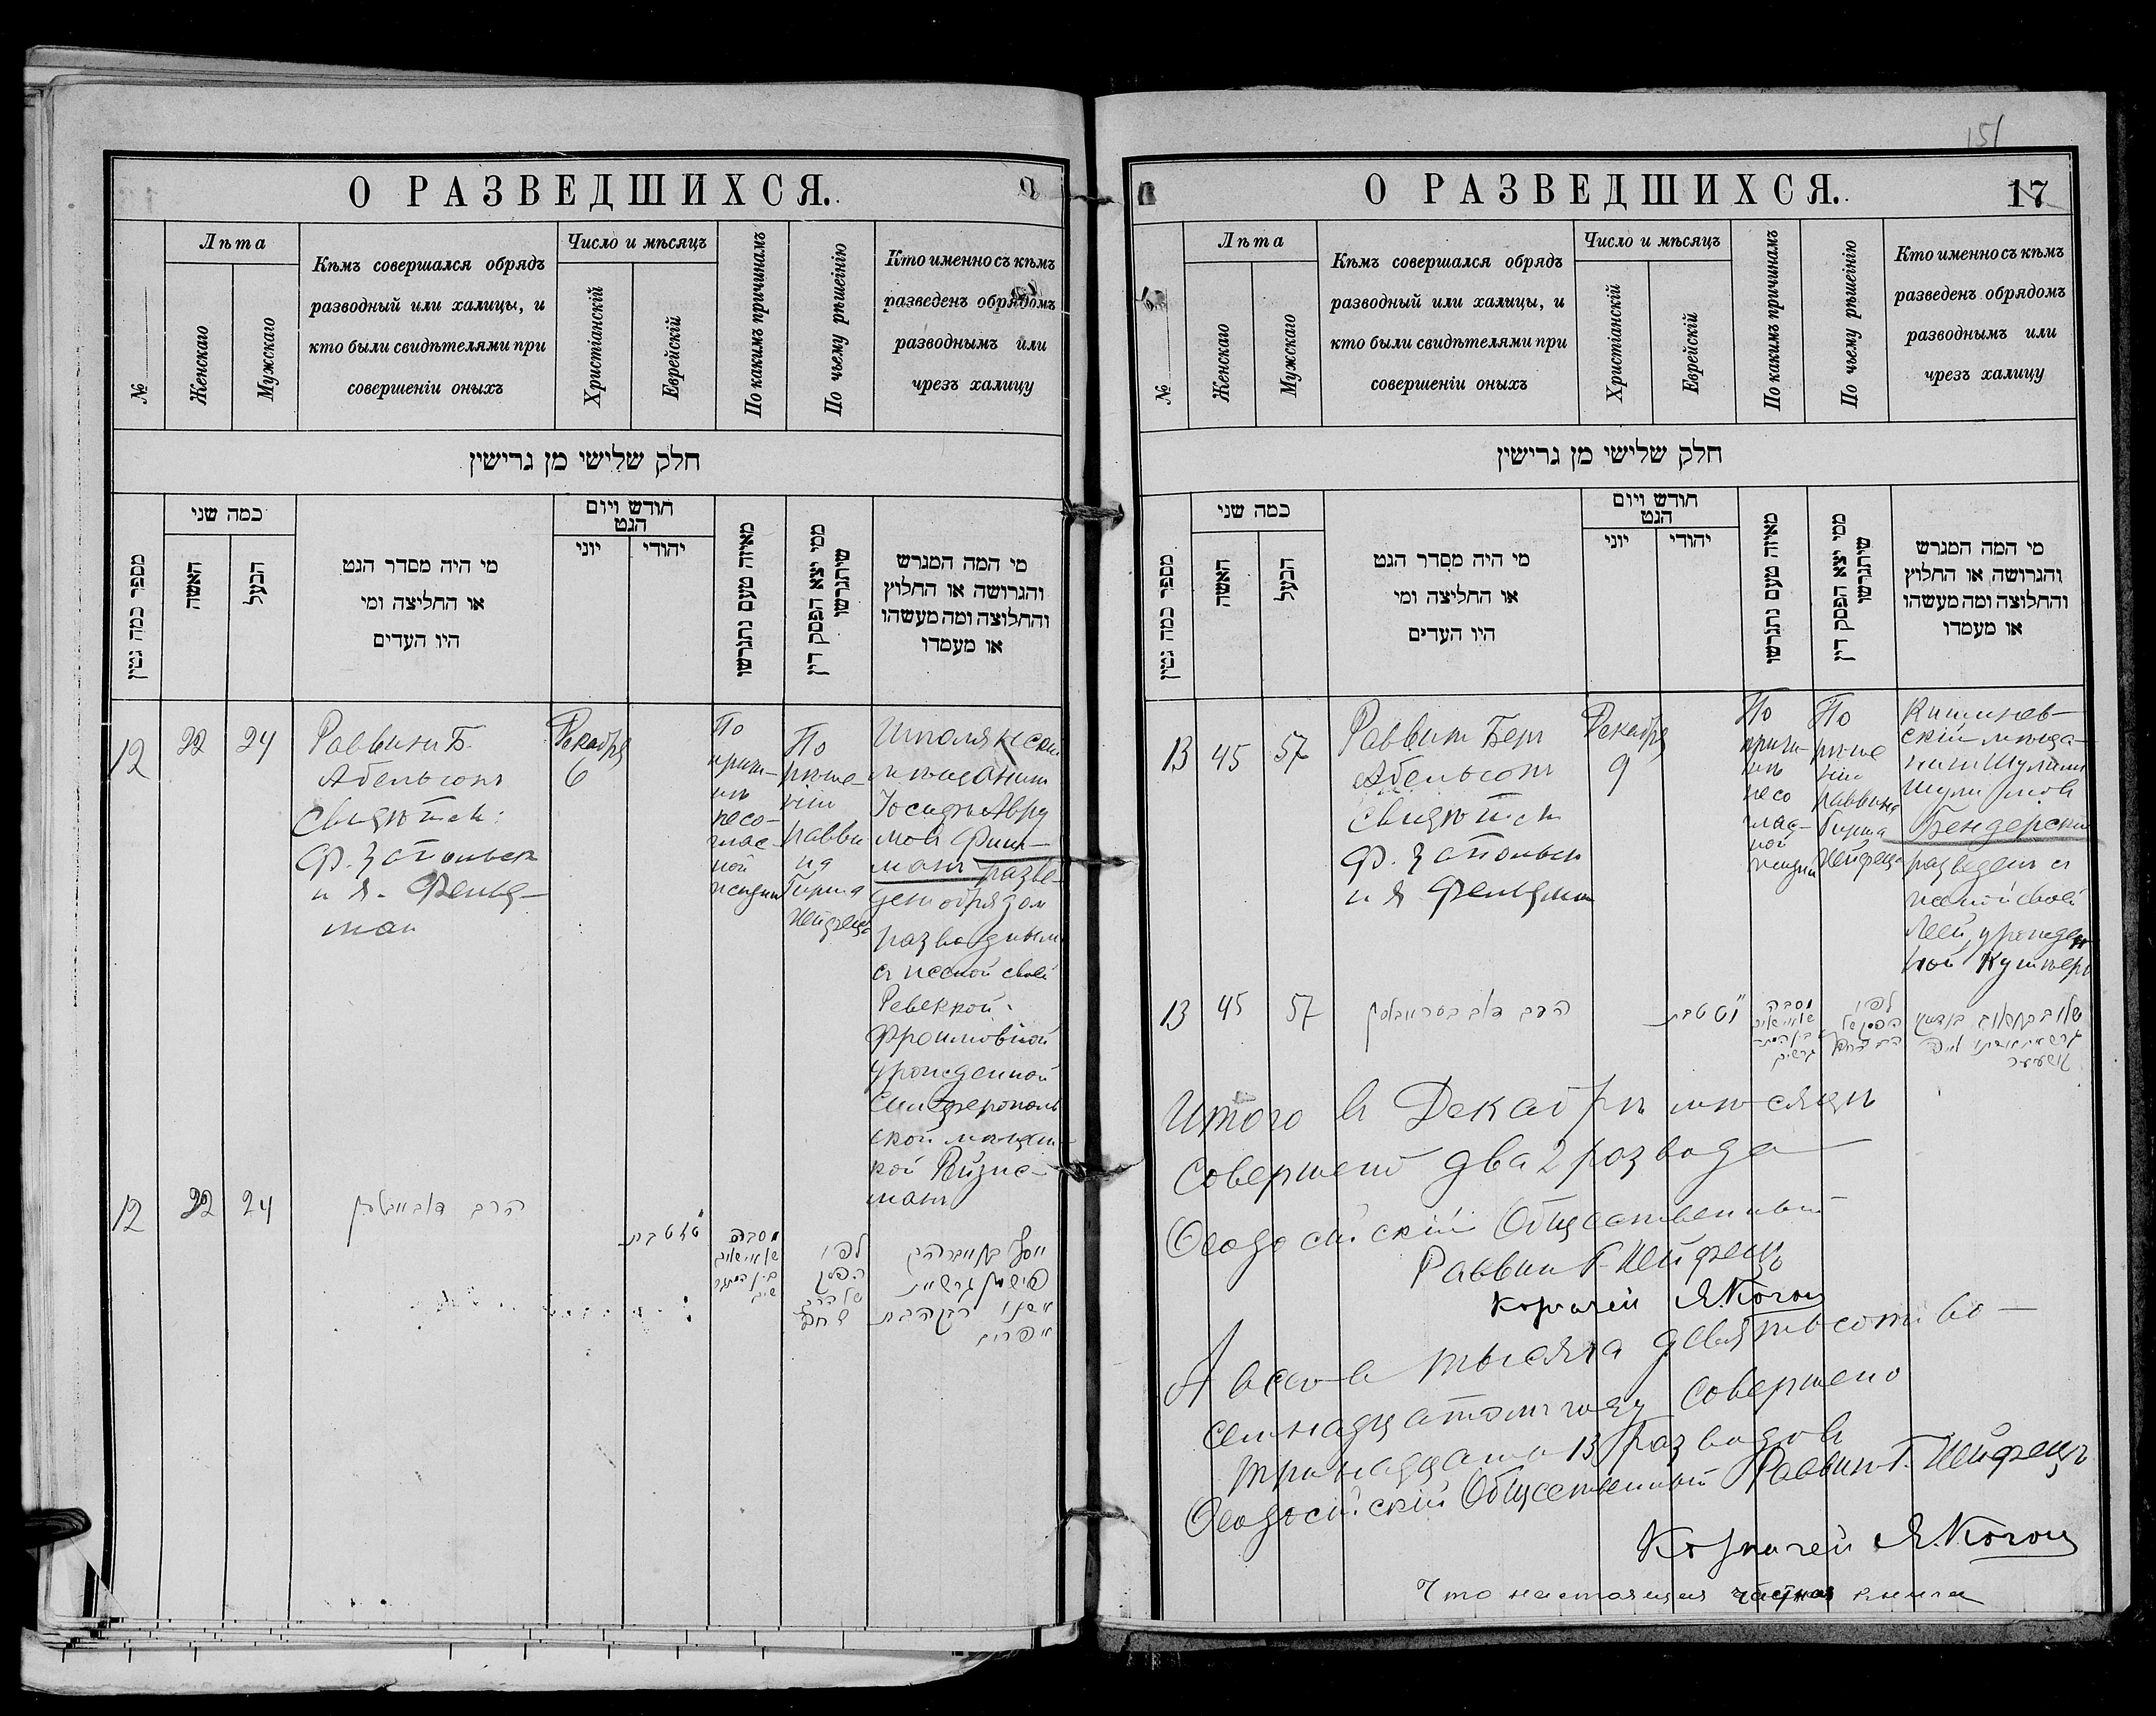 О РАЗВЕДШИХСЯ.
№
Лѣта
Женскаго
Мужскаго
Кѣмъ совершался обрядъ
разводный или халицы, и
кто были свидѣтелями при
совершеніи оныхъ
Число и мѣсяцъ
Христіанскій
Еврейскій
По какимъ причинамъ
По чьему рѣшеінію
Кто именно съ кѣмъ
разведенъ обрядомъ
разводнымъ или
чрезъ халицу
חלק שלישי מן גרישין
מספר כמה גטין
כמה שני
האשה
הבעל
מי היה מסדר הגט
או החליצה ומי
היו העדים
חודש ויום
הגט
יוני
יהודי
מאיזה טעם נתגרשו
ממי יצא הפסק דין
שיתגרשו
מי המה המגרש
והגרושה או החלוץ
והחלוצה ומה מעשהו
או מעמדו
12
22
24
Раввинъ Б.
Абельсонъ
Свидѣтели:
Ф.
и Я. Фельд-
ман
Декабря
6
По
причи-
нѣ
несо-
глас
ной
жизни
По
рѣше-
нію
равви
на
Гирша
Хейфеца
мѣщанинъ
Іосифъ Авру
мовъ Фиш-
манъ разве-
денъ обрядом
разводнымъ
съ женой своей
Ревеккой
Фроимовной
урожденной
Симферополь
ской мѣщан-
кой
манъ
12
22
24
הרב
טבת
לפי
הפסק
של הרב
יוסף בן אברהם
פישמן גרש את
אשתו רבקה בת
אפרים
О РАЗВЕДШИХСЯ.
17
151
№
Лѣта
Женскаго
Мужскаго
Кѣмъ совершался обрядъ
разводный или халицы, и
кто были свидѣтелями при
совершеніи оныхъ
Число и мѣсяцъ
Христіанскій
Еврейскій
По какимъ причинамъ
По чьему рѣшеінію
Кто именно съ кѣмъ
разведенъ обрядомъ
разводнымъ или
чрезъ халицу
חלק שלישי מן גרישין
מספר כמה גטין
כמה שני
האשה
הבעל
מי היה מסדר הגט
או החליצה ומי
היו העדים
חודש ויום
הגט
יוני
יהודי
מאיזה טעם נתגרשו
ממי יצא הפסק דין
שיתגרשו
מי המה המגרש
והגרושה או החלוץ
והחלוצה ומה מעשהו
או מעמדו
13
45
57
Раввинъ Беръ
Абельсонъ
Свидѣтели
Ф.
и Я Фельдман
Декабря
9
По
причи-
нѣ
несо
глас-
ной
жизни
По
рѣше
нію
раввина
Гирша
Хейфеца
Кишинев-
скій мѣща-
нинъ
Бендерскій
разведенъ съ
женой своей
Леей, урожден
ной
13
45
57
הרב
טבת
Итого въ Декабрѣ мѣсяцѣ
совершено два 2 развода
Ѳеодосійскій Общественный
Раввинъ Г. Хейфецъ
Казначей Я. Коган
А всего въ тысяча девятьсотъ во-
семнадцатомъ году совершено
тринадцать 13 разводовъ
Ѳеодосійскій Общественный Раввинъ Г. Хейфецъ
Казначей Я. Коган
Что настоящая книга